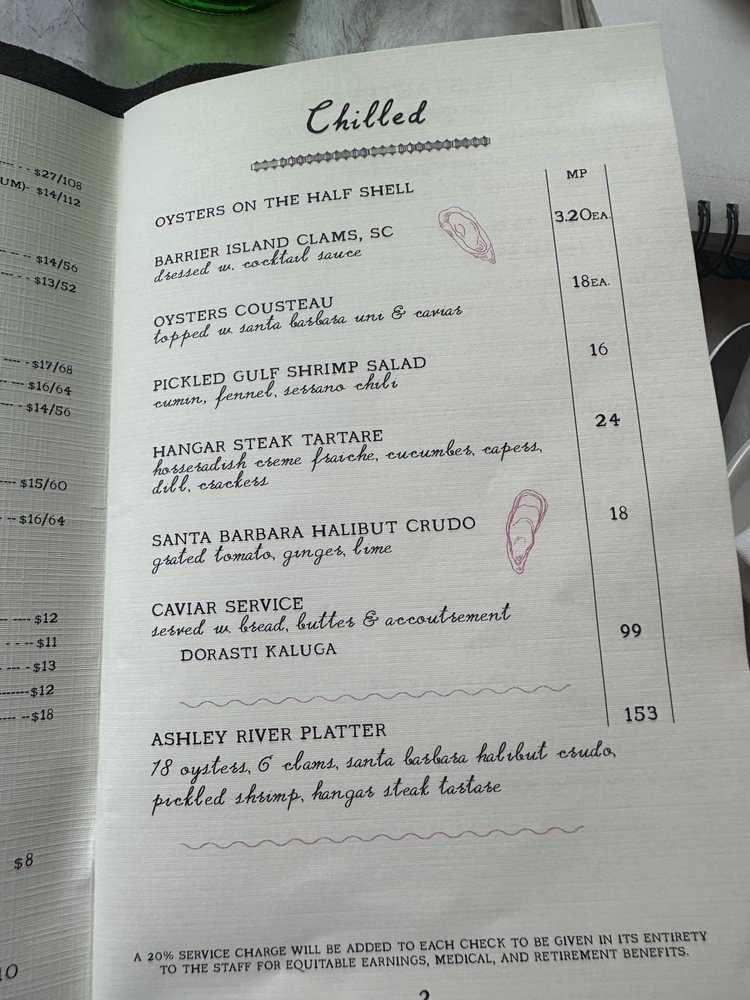 --- $27/108
UM)- $14/112
$14/56
$13/52
$17/68
$16/64
$14/56
---- $15/60
-- $16/64
---- $12
---- $11
--- $13
------$12
---- --$18
$8
Chilled
MP
OYSTERS ON THE HALF SHELL
3.20EA.
BARRIER ISLAND CLAMS, SC
dressed w. cocktail sauce
18EA.
OYSTERS COUSTEAU
topped w. santa barbara uni & caviar
16
PICKLED GULF SHRIMP SALAD
cumin, fennel, serrano chili
24
HANGAR STEAK TARTARE
horseradish creme fraiche, cucumber, capers,
dill, crackers
18
SANTA BARBARA HALIBUT CRUDO
grated tomato, ginger, lime
CAVIAR SERVICE
served w. bread, butter & accoutrement
99
DORASTI KALUGA
153
ASHLEY RIVER PLATTER
18 oysters, 6 clams, santa barbara halibut crudo,
pickled shrimp, hangar steak tartare
A 20% SERVICE CHARGE WILL BE ADDED TO EACH CHECK TO BE GIVEN IN ITS ENTIRETY
TO THE STAFF FOR EQUITABLE EARNINGS, MEDICAL, AND RETIREMENT BENEFITS.
2